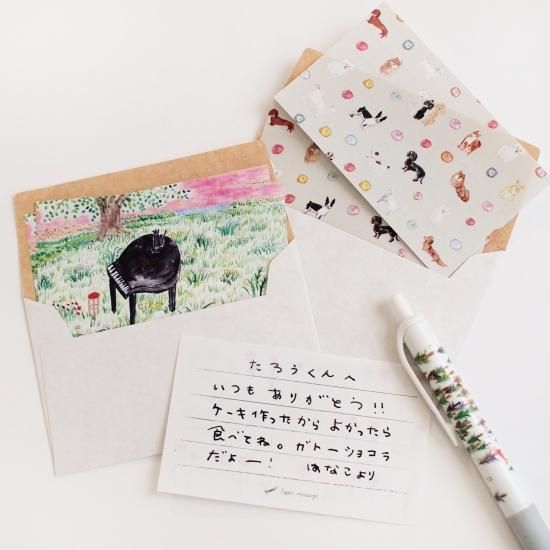 たろうくんへ
いつもありがとう!!
ケーキ作ったからよかったら
食べてね。ガトーショコラ
だよー! はなこより
Paper message